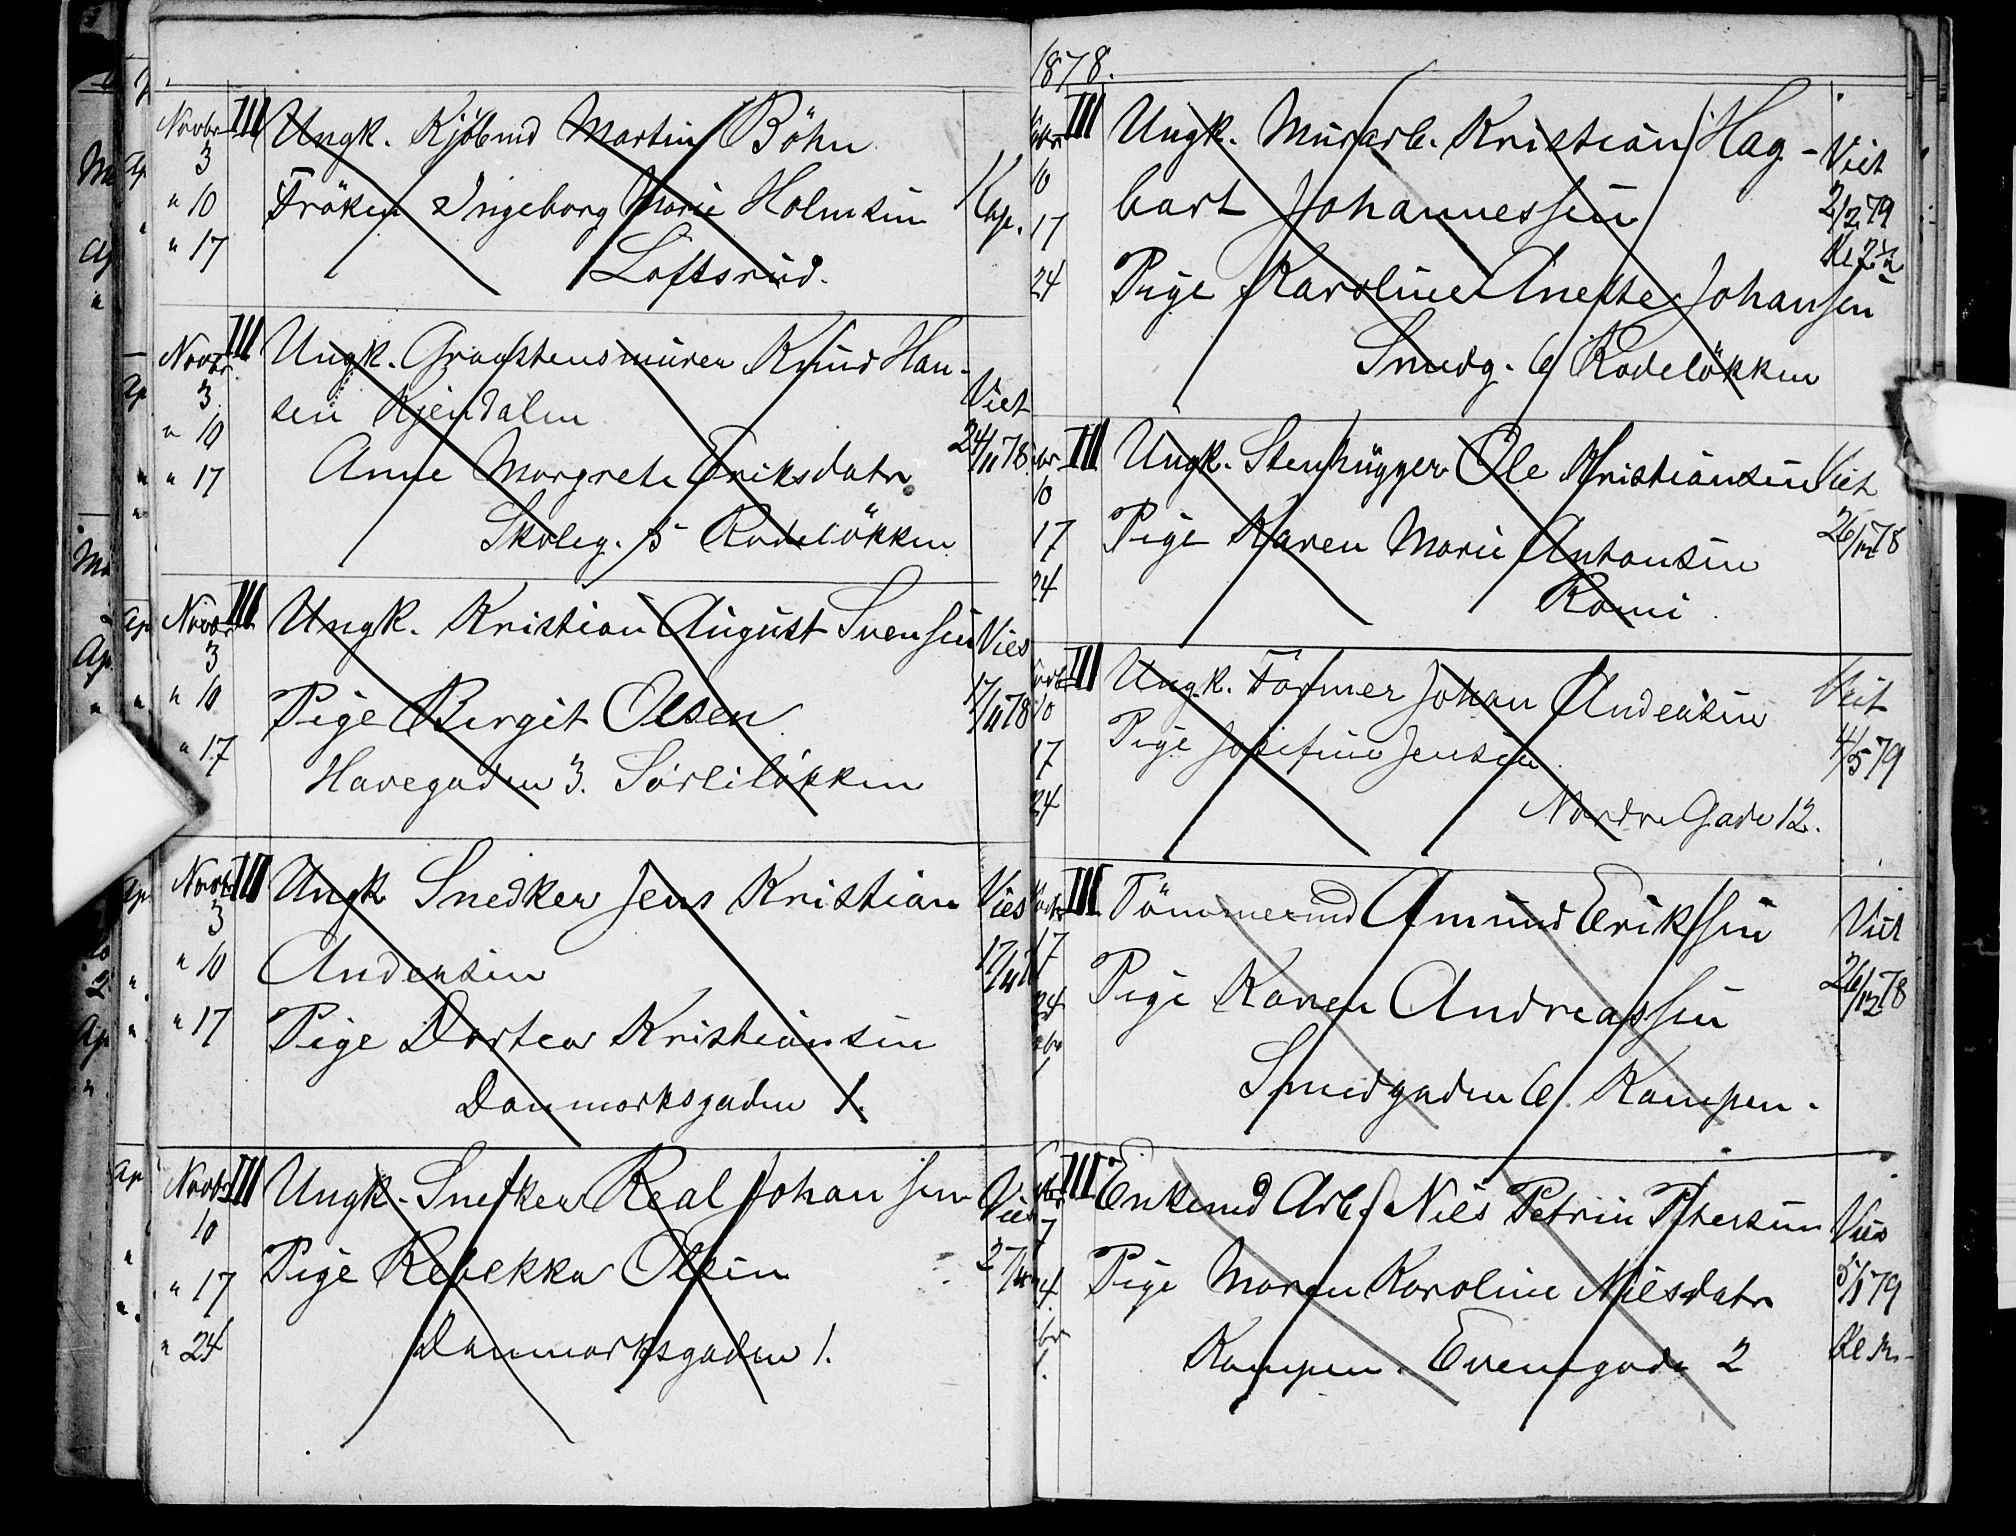 Novbr III Ungk. Kjöbmd Martin Böhn
3
" 10 Fröken Ingeborg Marie Holmsen Kap.
" 17 Loftsrud.
Novbr III Ungk. Graastensmurer Knud Han-
3 sen Kjendalen Viet
" 10 Anne Margrete Eriksdatr 24/11 78
" 17 Skoleg. 5 Rodelökken
Novbr III Ungk. Kristian August Svensen Vies
3
" 10 Pige Birgit Olsen 17/11 78
" 17 Havegaden 3. Sörlilökken
Novbr III Ungk Snedker Jens Kristian Vies
3
" 10 Andersen 17/11
" 17 Pige Dortea Kristiansen
Danmarksgaden 1.
Novbr III Ungk. Snedker Real Johansen Vies
10
" 17 Pige Rebekka Olsen
" 24 Danmarksgaden 1.
1878.
III Ungk. Murarb. Kristian Hag- Viet
10 bart Johannessen 2/2 79
17 Kl 7 ½
24 Pige Karoline Anette Johansen
Smedg. 6 Rodelökken
III Ungk. Stenhugger Ole Kristiansen Viet
10
17 Pige Karen Marie Antonsen 26/12 78
24
III Ungk. Former Johan Andersen Viet
10 Pige Josefine Jensen 4/5 79
17
24 Nordre Gade 12.
III Tömmermd Amund Eriksen Viet
17
24 Pige Karen Andreassen 26/12 78
Smedgaden 6. Kampen.
III Enkemd Arb. Nils Petrin Petersen Vies
Pige Maren Karoline Nilsdatr 5/1 79
Kampen. Evensgade 2 Kl